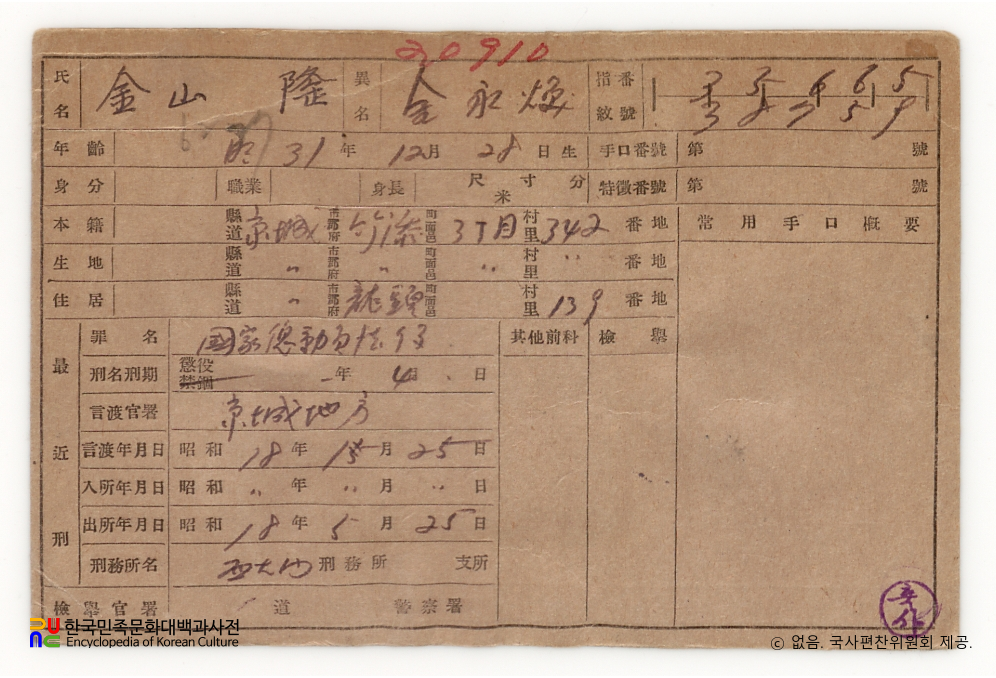 20910
氏名 金山 隆 異名 金永煥 指紋番號
年齡 明 31 年 12 月 28 日生 手口番號 第 號
身分 職業 身長 尺 寸 分 米 特徵番號 第 號
本籍 縣道 京城 市郡府 竹添 町面邑 3丁目 村里 342 番地 常用手口概要
生地 縣道 〃 市郡府 〃 町面邑 〃 村里 〃 番地
住居 縣道 〃 市郡府 龍頭 町面邑 村里 139 番地
最近刑
罪名 国家總動員法 其他前科 檢擧
刑名刑期 懲役 禁錮 年 4月 日
言渡官署 京城地方
言渡年月日 昭和 18 年 月 25 日
入所年月日 昭和 〃 年 〃 月 〃 日
出所年月日 昭和 18 年 5 月 25 日
刑務所名 西大门 刑務所 支所
檢擧官署 道 警察署
한국민족문화대백과사전
Encyclopedia of Korean Culture
ⓒ 없음. 국사편찬위원회 제공.